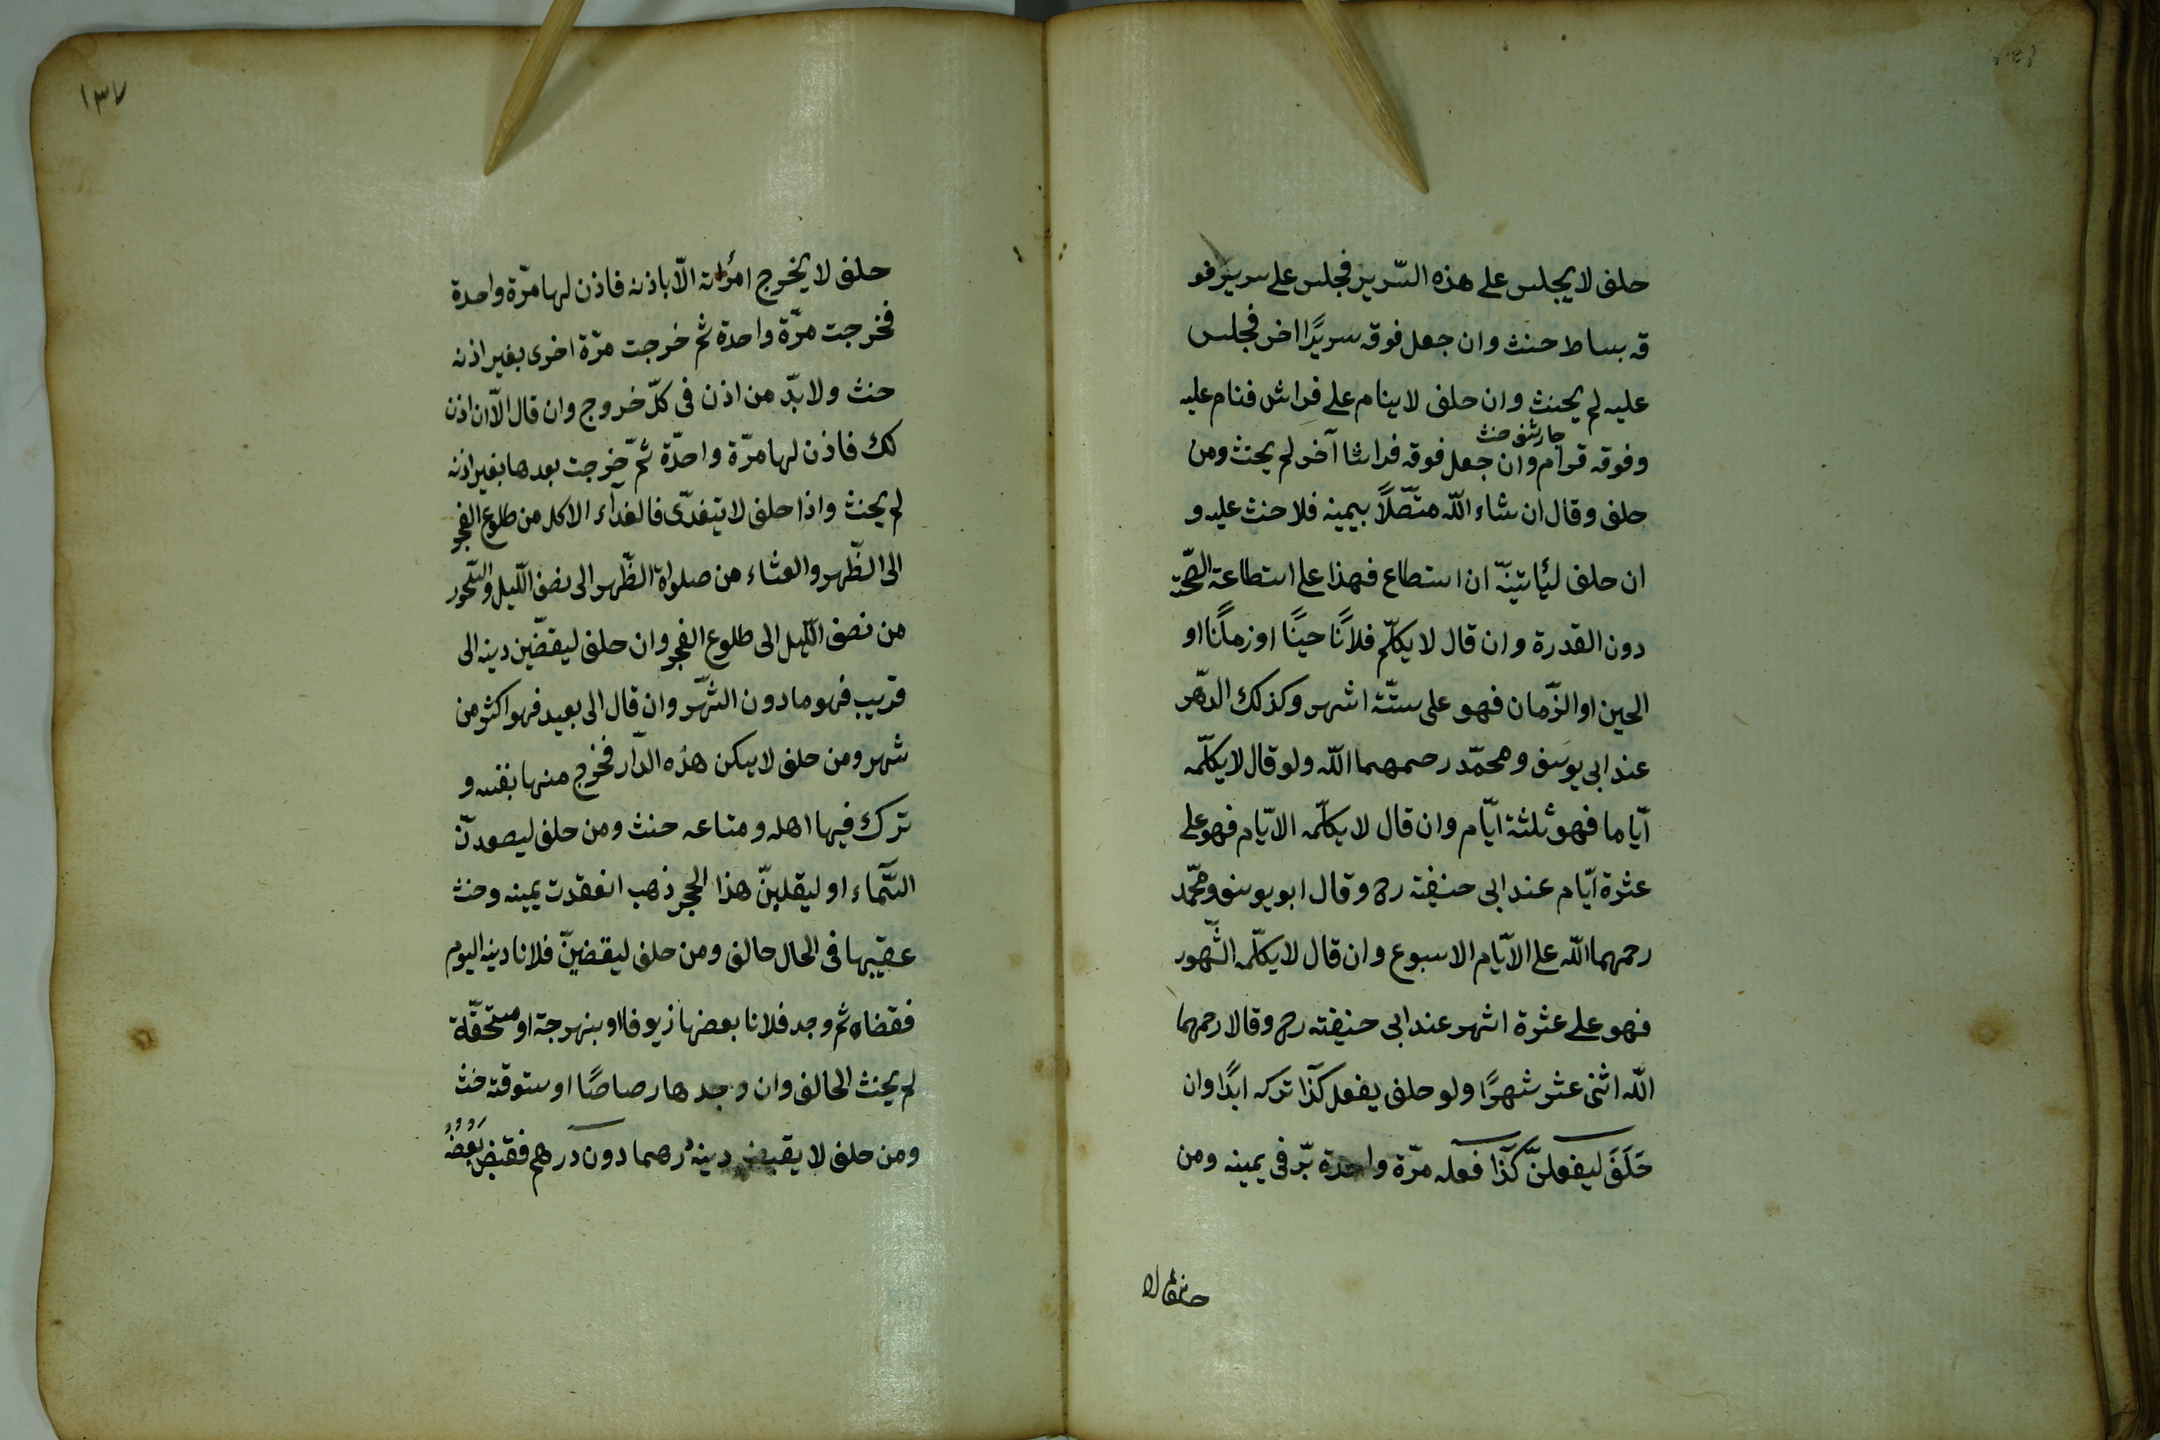 حلف لا يجلس على هذه السّرير فجلس على سرير فو
قه بساط حنث وان جعل فوقه سريرًا اخر فجلس
عليه لم يحنث وان حلف لا ينام على فراش فنام عليه
حنث
وفوقه قرام وان جعل فوقه فراشا آخر لم يحنث ومن
حلف وقال ان شاء اللّه متّصلًا بيمينه فلا حنث عليه و
ان حلف ليأتينّه ان استطاع فهذا على استطاعة الصّحّة
دون القدرة وان قال لا يكلّم فلانًا حينًا او زمانًا او
الحين او الزّمان فهو على ستّة اشهر وكذلك الدّهر
عند ابى يوسف ومحمّد رحمهما اللّه ولو قال لا يكلّمه
ايّاما فهو ثلثة ايّام وان قال لا يكلّمه الايّام فهو على
عشرة ايّام عند ابى حنيفة رح وقال ابو يوسف ومحمّد
رحمهما اللّه على الايّام الاسبوع وان قال لا يكلّمه الشّهور
فهو على عشرة اشهر عند ابى حنيفته رح وقالا رحمهما
اللّه اثنى عشر شهرًا ولو حلف يفعل كذا تركه ابدًا وان
حَلَفَ ليفعلنّ كذا فعله مرّة واحدة برّ فى يمينه ومن
١٣٧
حلف لا يخرج امرأته الّا باذنه فاذن لها مرّة واحدة
فخرجت مرّة واحدة ثم خرجت مرّة اخرى بغير اذنه
حنث ولا بدّ من اذن فى كلّ خروج وان قال الّا ان اذن
لك فاذن لها مرّة واحدة ثمّ خرجت بعدها بغير اذنه
لم يحنث واذا حلف لا يتغدّى فالغدآء الاكل من طلوع الفجر
الى الظّهر والعشاء من صلواة الظّهر الى نصف اللّيل والسّحور
من نصف اللّيل الى طلوع الفجر وان حلف ليقضّين دينه الى
قريب فهو ما دون الشّهر وان قال الى بعيد فهو اكثر من
شهر ومن حلف لا يسكن هذه الدّار فخرج منها بنفسه و
ترك فيها اهله ومتاعه حنث ومن حلف ليصعدنّ
السّمآء او ليقلبنّ هذا الحجر ذهب انعقدت يمينه وحنث
عقيبها فى الحال حالف ومن حلف ليقضينّ فلانا دينه اليوم
فقضاه ثم وجد فلانا بعضها زيوفا او بنهرجة او مستحقّة
لم يحنث الحالف وان وجدها رصاصًا او ستوقة حنث
ومن حلف لا يقبض دينه درهما دون درهم فقبض بعضه